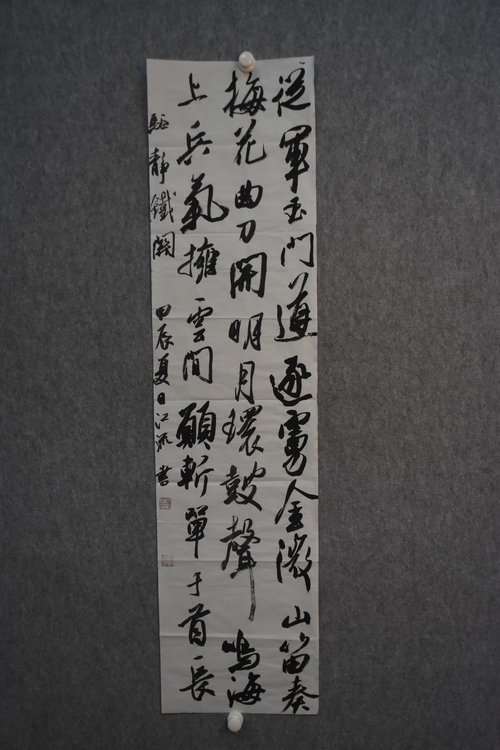 從軍玉門道逐虜金微山笛奏
梅花曲刀開明月環鼓聲鳴海
上兵氣擁雲間願斬單于首長
驅靜鐵關 甲辰夏日江書